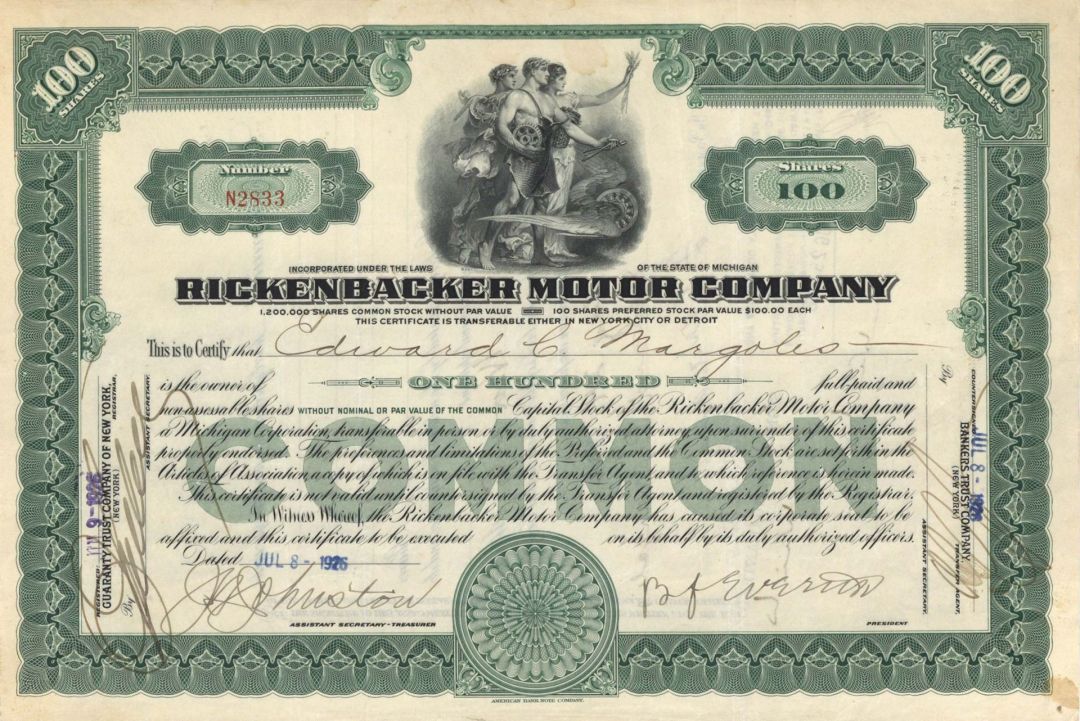 100 SHARES
100 SHARES
Number
N2833
Shares
100
INCORPORATED UNDER THE LAWS OF THE STATE OF MICHIGAN
RICKENBACKER MOTOR COMPANY
1,200,000 SHARES COMMON STOCK WITHOUT PAR VALUE 100 SHARES PREFERRED STOCK PAR VALUE $100.00 EACH
THIS CERTIFICATE IS TRANSFERABLE EITHER IN NEW YORK CITY OR DETROIT
This is to Certify that Edward C. Margoles
is the owner of ONE HUNDRED full-paid and
non-assessable shares WITHOUT NOMINAL OR PAR VALUE OF THE COMMON Capital Stock of the Rickenbacker Motor Company
a Michigan Corporation, transferable in person or by duly authorized attorney upon surrender of this certificate
properly endorsed. The preferences and limitations of the Preferred and the Common Stock are set forth in the
Articles of Association, a copy of which is on file with the Transfer Agent, and to which reference is herein made.
This certificate is not valid until countersigned by the Transfer Agent and registered by the Registrar.
In Witness Whereof, the Rickenbacker Motor Company has caused its corporate seal to be
affixed and this certificate to be executed on its behalf by its duly authorized officers.
COMMON
Dated JUL 8 - 1926
Johnston
ASSISTANT SECRETARY-TREASURER
B F Everitt
PRESIDENT
REGISTERED:
JUL 9 - 1926
GUARANTY TRUST COMPANY OF NEW YORK,
(NEW YORK) REGISTRAR,
By
ASSISTANT SECRETARY.
COUNTERSIGNED
JUL 8 - 1926
BANKERS TRUST COMPANY,
(NEW YORK) TRANSFER AGENT,
By
ASSISTANT SECRETARY.
AMERICAN BANK NOTE COMPANY.